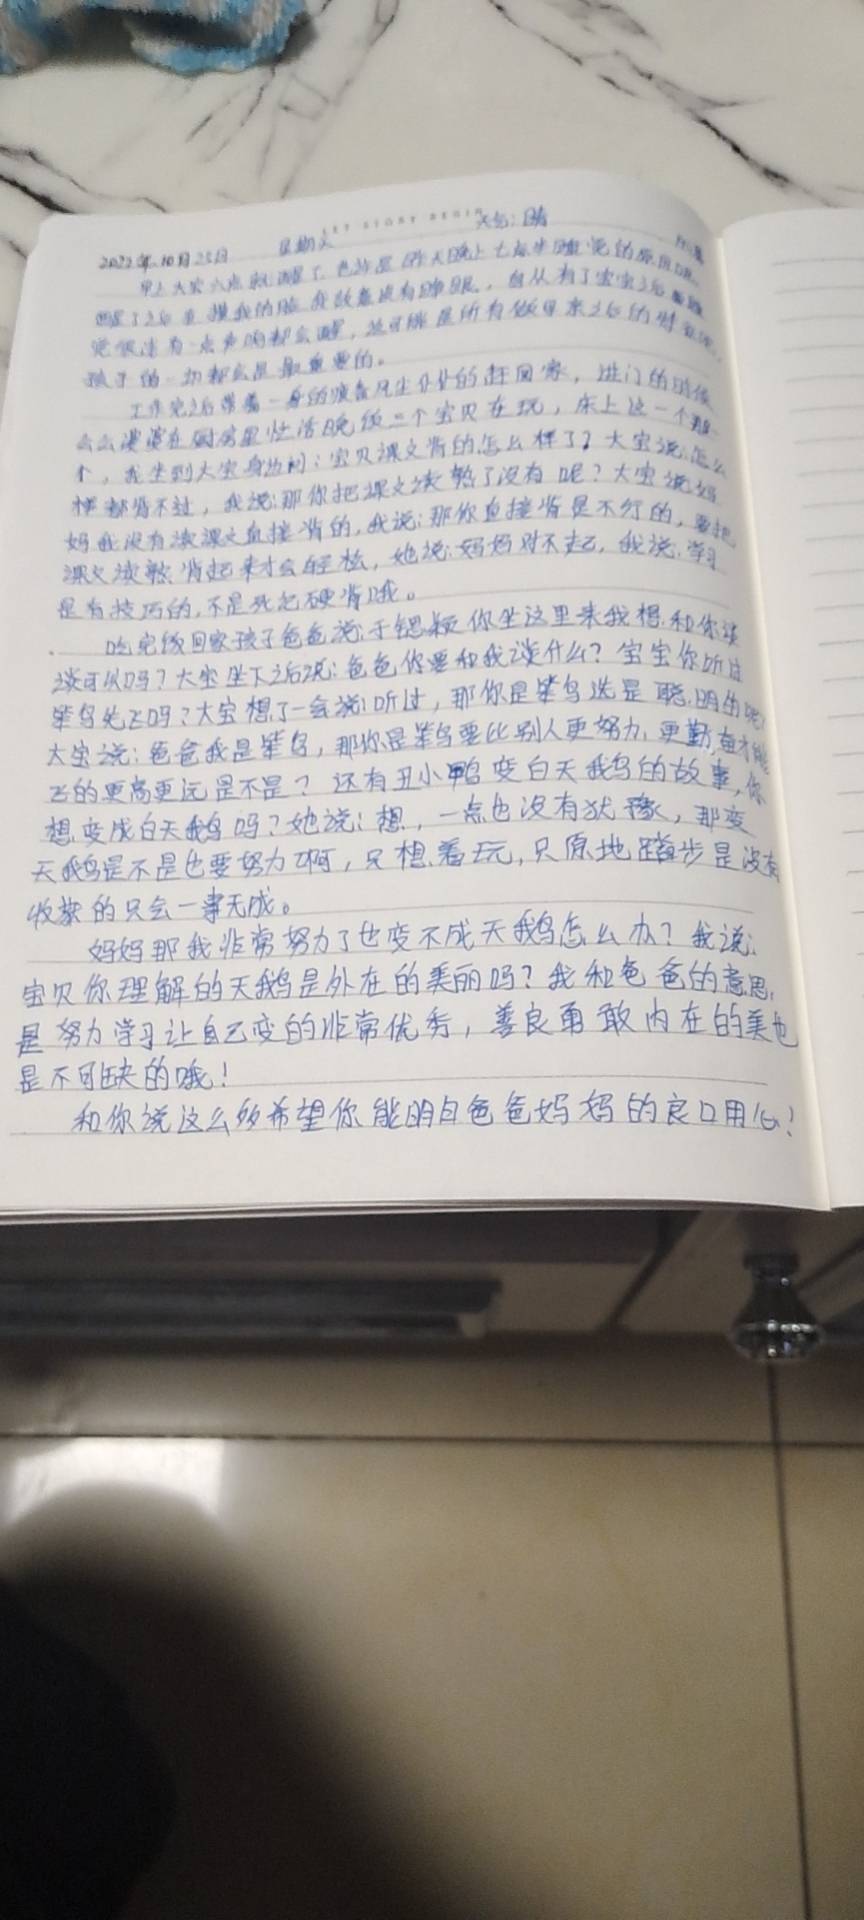 LET STORY BEGIN
2022年10月23日 星期天 天气:晴
早上大宝六点就醒了,也许是昨天晚上七点半睡觉的原因吧
醒了之后直摸我的脸我故意没有睁眼,自从有了宝宝之后
觉很浅有一点声响都会醒,这可能是所有做母亲之后的
孩子的一切都会是最重要的。
工作完之后带着一身的疲备风尘仆仆的赶回家,进门的时候
么么婆婆在厨房里忙活晚饭三个宝贝在玩,床上这一个那一
个,我坐到大宝身边问:宝贝课文背的怎么样了?大宝说:怎么
样都背不过,我说:那你把课文读熟了没有呢?大宝说妈
妈我没有读课文直接背的,我说:那你直接背是不行的,要把
课文读熟背起来才会轻松,她说:妈妈对不起,我说:学习
是有技巧的,不是死记硬背哦。
吃完饭回家孩子爸爸说:于锶颖你坐这里来我想和你谈
谈可以吗?大宝坐下之后说:爸爸你要和我谈什么?宝宝你听过
笨鸟先飞吗?大宝想了一会说:听过,那你是笨鸟还是聪明鸟呢?
大宝说:爸爸我是笨鸟,那你是笨鸟要比别人更努力,更勤奋才能
飞的更高更远是不是?还有丑小鸭变白天鹅的故事,你
想变成白天鹅吗?她说:想,一点也没有犹豫,那变
天鹅是不是也要努力啊,只想着玩,只原地踏步是没有
收获的只会一事无成。
妈妈那我非常努力了也变不成天鹅怎么办?我说:
宝贝你理解的天鹅是外在的美丽吗?我和爸爸的意思,
是努力学习让自己变的非常优秀,善良勇敢内在的美也
是不可缺的哦!
和你说这么多希望你能明白爸爸妈妈的良口用心!